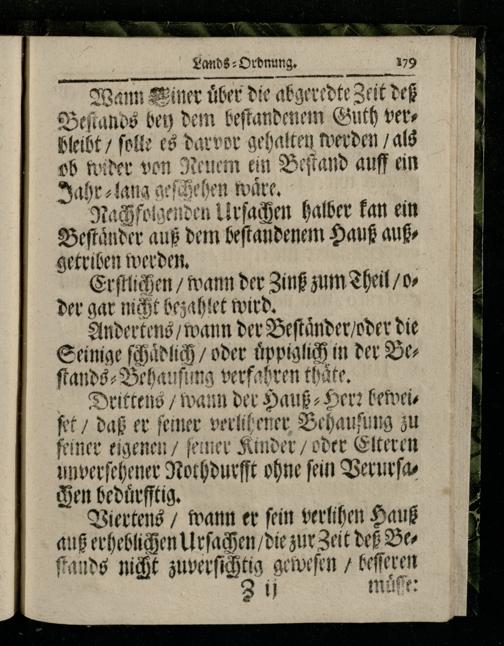 Lands-Ordnung. 179
Wann Einer über die abgeredte Zeit deß
Bestands bey dem bestandenem Guth ver-
bleibt / solle es darvor gehalten werden / als
ob wider von Neuem ein Bestand auff ein
Jahr-lang geschehen wäre.
Nachfolgenden Ursachen halber kan ein
Beständer auß dem bestandenem Hauß auß-
getriben werden.
Erstlichen / wann der Zinß zum Theil / o-
der gar nicht bezahlet wird.
Andertens / wann der Beständer / oder die
Seinige schädlich / oder üppiglich in der Be-
stands-Behausung verfahren thäte.
Drittens / wann der Hauß-Herr bewei-
set / daß er seiner verlihener Behausung zu
seiner eigenen / seiner Kinder / oder Elteren
unversehener Nothdurfft ohne sein Verursa-
chen bedürfftig.
Viertens / wann er sein verlihen Hauß
auß erheblichen Ursachen / die zur Zeit deß Be-
stands nicht zuversichtig gewesen / besseren
Z ij müsse: